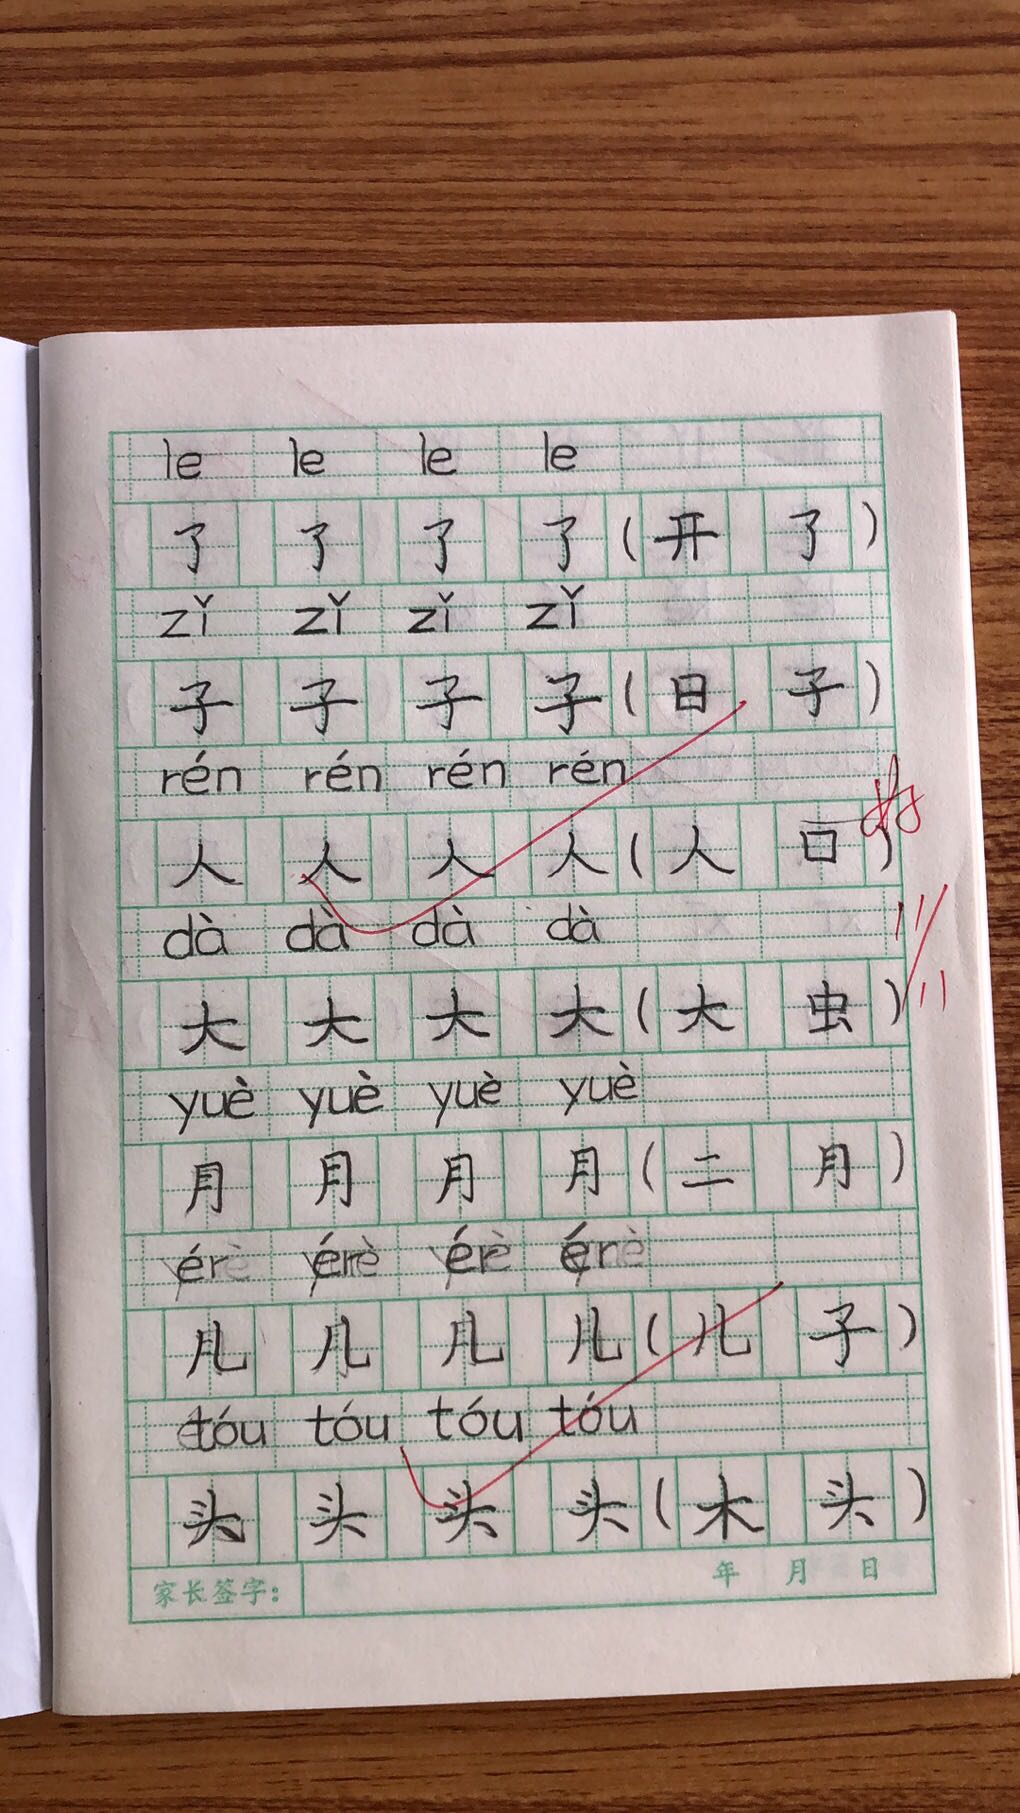 le le le le
了 了 了 了 (开 了)
zǐ zǐ zǐ zǐ
子 子 子 子 (日 子)
rén rén rén rén
人 人 人 人 (人 口)
dà dà dà dà
大 大 大 大 (大 虫)
yuè yuè yuè yuè
月 月 月 月 (二 月)
ér ér ér ér
儿 儿 儿 儿 (儿 子)
tóu tóu tóu tóu
头 头 头 头 (木 头)
家长签字: 年 月 日